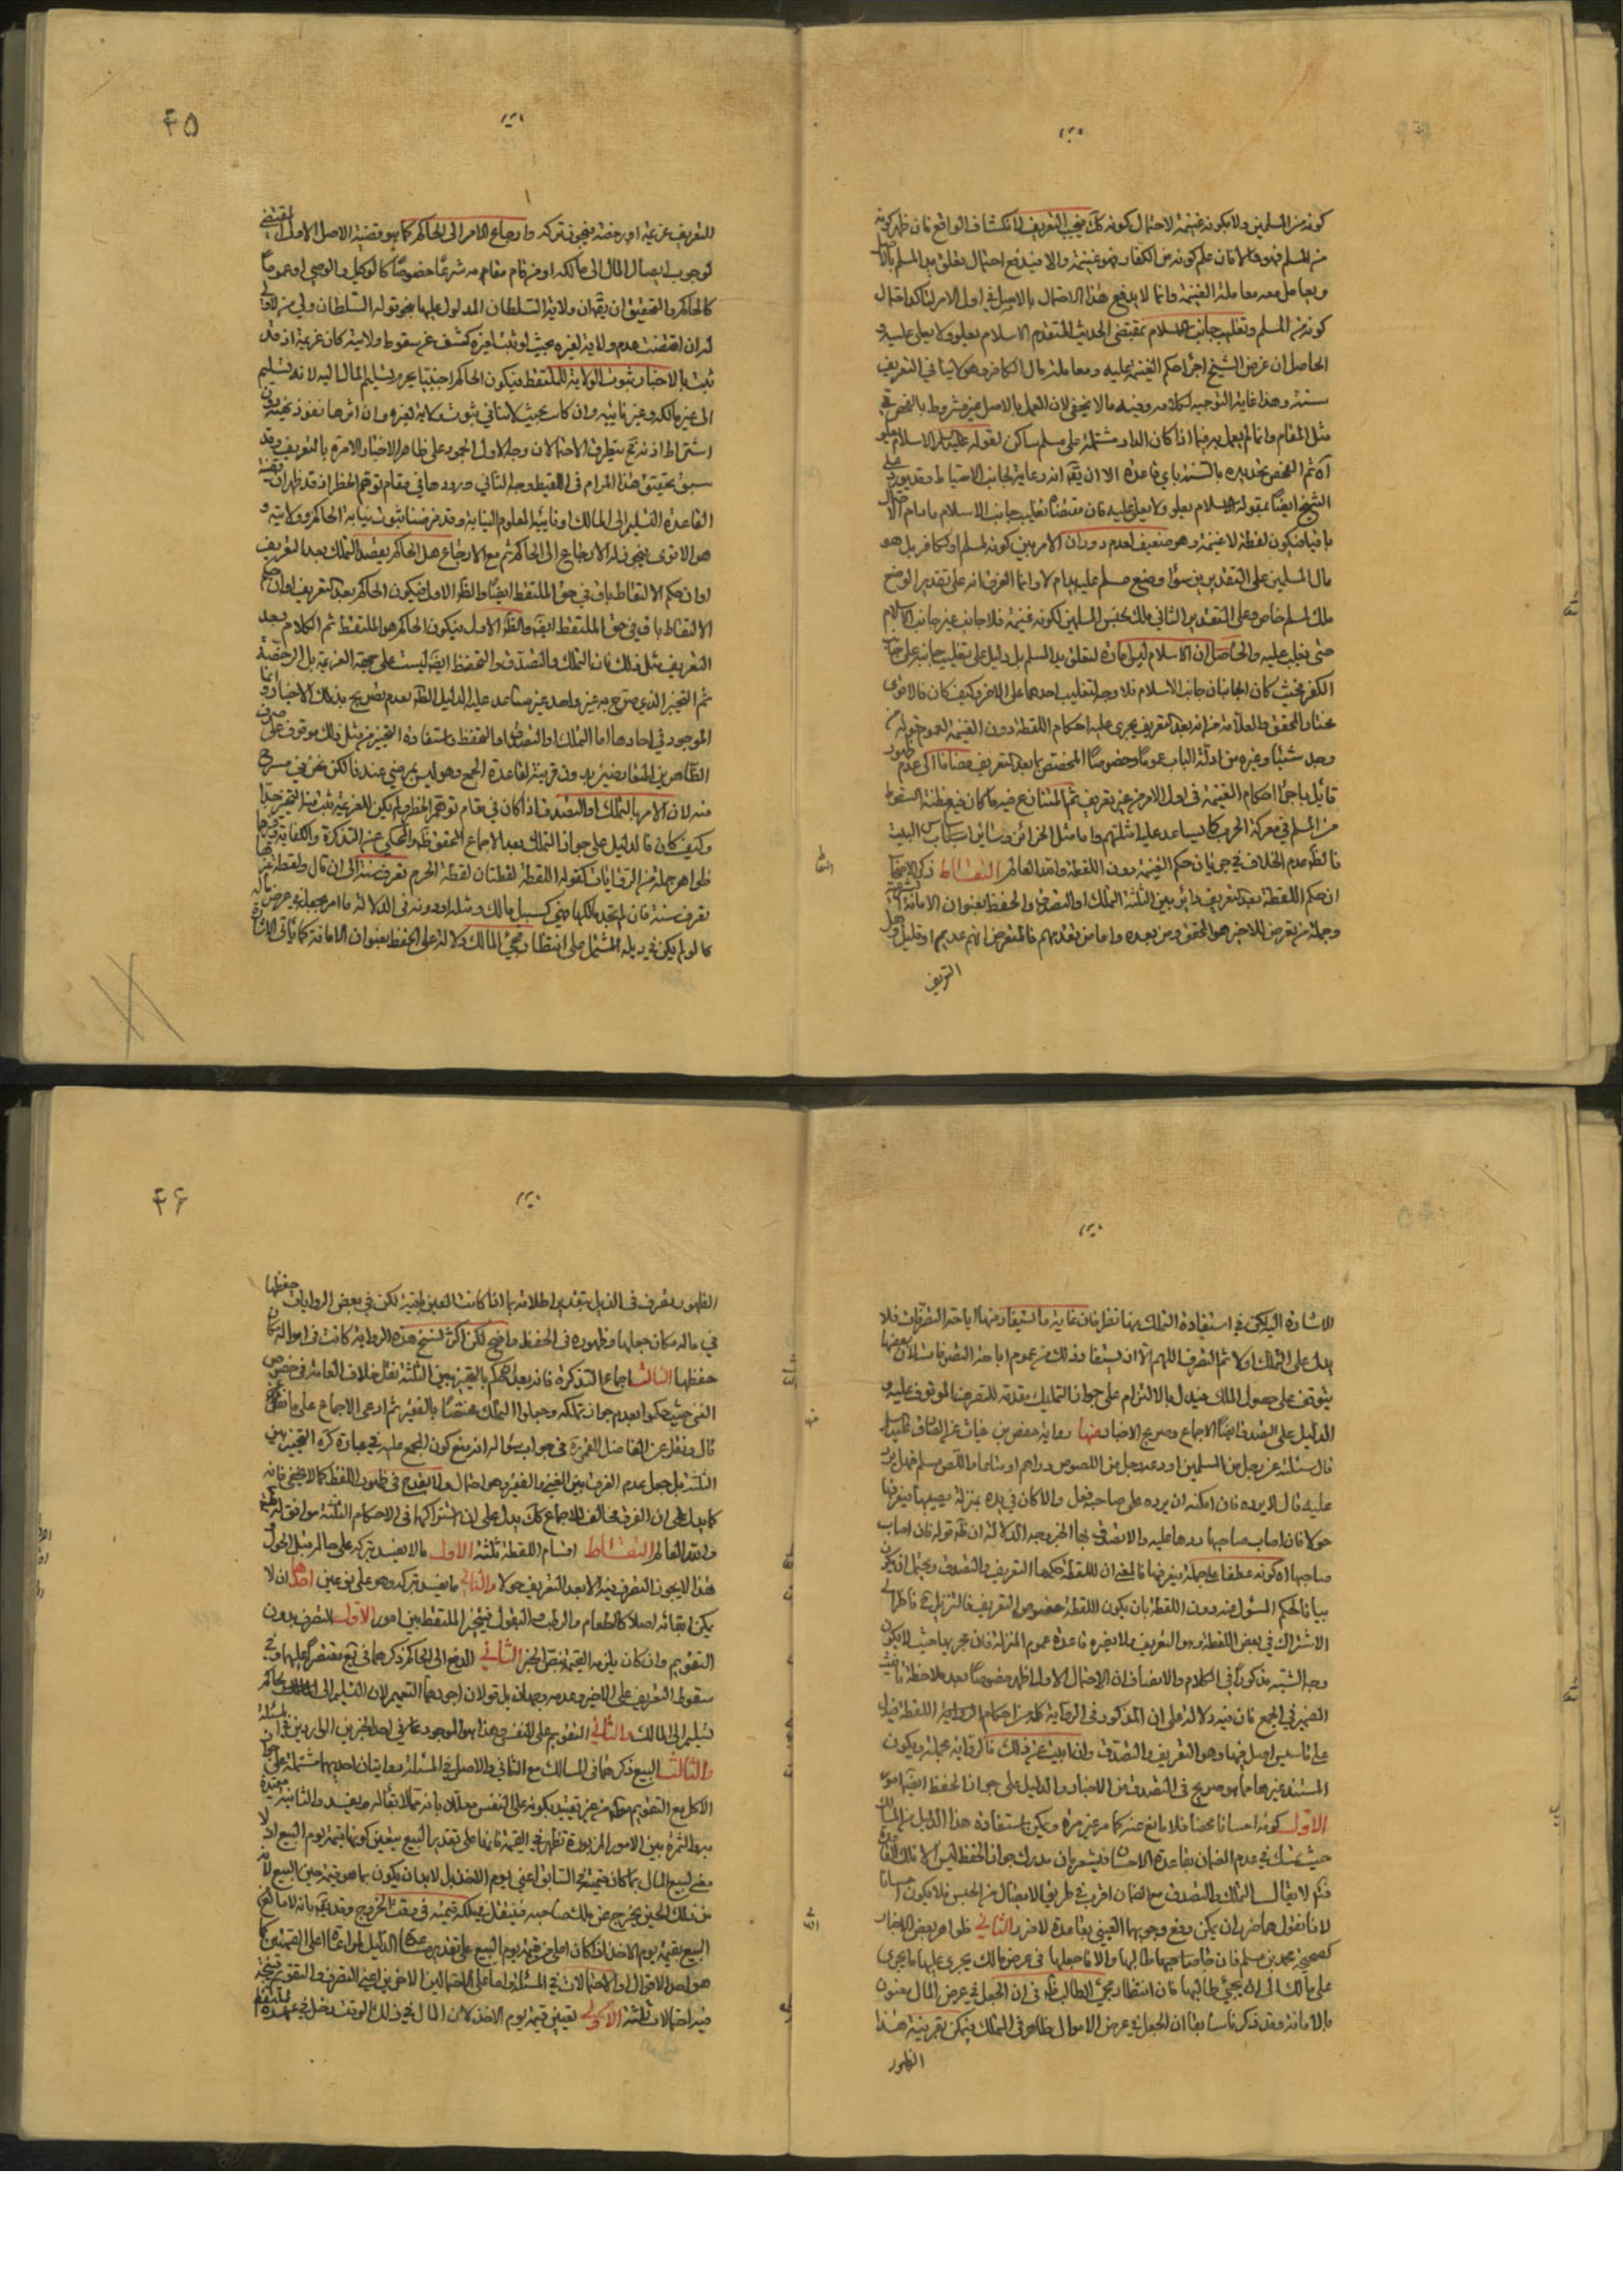 كونه من المسلمين ولا بكونه غنيمة لاحتمال كونه كك فيجب التعريف لانكشاف الواقع فان ظهر كونه
من المسلم فهو والا فان علم كونه من الكفار فهو غنيمة والا فيدفع احتمال تعلق يد المسلم بالاصل
ويعامل معه معاملة الغنيمة وانما لا يدفع هذا الاحتمال بالاصل في اول الامر لتاكد احتمال
كونه من المسلم وتغليب جانب الاسلام بمقتضى الحديث المتقدم الاسلام يعلو ولا يعلى عليه و
الحاصل ان غرض الشيخ اجراء حكم الغنيمة عليه ومعاملة مال الكافر وهو لا ينافي التعريف
سنة وهذا غاية التوجيه لكلامه وفيه ما لا يخفى لان العمل بالاصل غير مشروط بالفحص في
مثل المقام وانما لم يعمل به فيما اذا كان الدار مشتملة على مسلم ساكن لقوله عليه السلام الاسلام يعلو
آه ثم الفحص تحديده بالسنة باي قاعدة الا ان يقال انه رعاية لجانب الاحتياط وقد يورد على
الشيخ ايضا بقوله الاسلام يعلو ولا يعلى عليه فان مقتضاه تغليب جانب الاسلام ما دام الاحتمال
باقيا فيكون لقطة لا غنيمة وهو ضعيف لعدم دوران الامر بين كونه لمسلم او لكافر بل هو
مال المسلمين على التقديرين سواء وضع مسلم عليه يد ام لا وانما الفرق انه على تقدير الوضع
ملك مسلم خاص وعلى التقدير الثاني ملك لجنس المسلمين لكونه غنيمة فلا جانب غير جانب الاسلام
حتى يغلب عليه والحاصل ان الاسلام ليس امارة لتعلق يد المسلم بل دليل على تغليب جانبه على جانب
الكفر فحيث كان الجانبان جانب الاسلام فلا وجه لتغليب احدهما على الاخر وكيف كان فالاقوى
مختار المحقق والعلامة من انه بعد التعريف يجرى عليه احكام اللقطة دون الغنيمة لعموم قوله من
وجد شيئا وغيره من ادلة الباب عموما وخصوصا المختص بما بعد التعريف مضافا الى عدم ظهور
قائل باجراء احكام الغنيمة في اول الامر من غير تعريف ثم المتنازع فيه ما كان فيه مظنة السقوط
من المسلم في معركة الحرب كما يساعد عليه امثلتهم واما مثل الخزائن وسائر اسباب البيت
فالظ عدم الخلاف في جريان حكم الغنيمة دون اللقطة والله العالم التقاط ذكر الاصحاب
ان حكم اللقطة بعد التعريف دائر بين الثلثة التملك او التصدق والحفظ بعنوان الامانة
وجملة من تعرض للاخير هو المحقق ومن بعده واما من تقدمهم فالمتعرض لهم عديم او قليل وهل
التعريف
٤٥
التعريف عزيمة او رخصة فيجوز تركه وارجاع الامر الى الحاكم كما هو قضية الاصل الاول المقتضى
لوجوب ايصال المال الى مالكه او من قام مقامه شرعا خصوصا كالوكيل والوصي او عموما
كالحاكم والتحقيق ان يقال ان ولاية السلطان المدلول عليها بنحو قوله السلطان ولي من لا ولي
له ان اقتضت عدم ولاية لغيره بحيث لو ثبت لغيره كشف عن سقوط ولايته كان عزيمة اذ قد
ثبت بالاخبار ثبوت الولاية للملتقط فيكون الحاكم اجنبيا يحرم تسليم المال اليه لانه تسليم
الى غير مالكه وغير نائبه وان كان بحيث لا ينافي ثبوت ولاية لغيره وان اثرها نفوذ تخيير دون
اشتراط اذنه تج يتطرق الاحتمالان وجه الاول الجمود على ظاهر الاخبار الامرة بالتعريف وقد
سبق تحقيق هذا المرام في اللقيط وجه الثاني ورودها في مقام توهم الحظر اذ قد ظهر ان قضية
القاعدة التسليم الى المالك او نائبه المعلوم النيابة وقد فرضنا ثبوت نيابة الحاكم وولايته و
هو الاقوى فيجوز له الارجاع الى الحاكم ثم مع الارجاع هل الحاكم يقصد التملك بعد التعريف
او ان حكم الالتقاط باق في حق الملتقط ايضا والظ الاول فيكون الحاكم بعد التعريف او ان حكم
الالتقاط باق في حق الملتقط ايضا والظ الاول فيكون الحاكم هو الملتقط ثم الكلام بعد
التعريف مثل ذلك فان التملك والتصدق والتحفظ ايضا ليست على جهة العزيمة بل الرخصة
ثم التخيير الذي صرح به غير واحد غير مساعد عليه الدليل الظ لعدم تصريح بذلك الاخبار وانما
الموجود في احادها اما التملك او التصدق او التحفظ واستفادة التخيير من مثل ذلك موقوف على صرف
الظاهرين المتعارضين بدون قرينة لقاعدة الجمع وهو ليس بمرضي عندنا لكن نحن في مسرح
منه لان الامر بالتملك او التصدق اذا كان في مقام توهم الحظر ولم يكن للعزيمة ثبت منه التخيير جدا
وكيف كان فالدليل على جواز التملك بعد الاجماع المحقق ظ والمحكى عن التذكرة والكفاية وغيرها
ظواهر جملة من الروايات كقوله اللقطة لقطتان لقطة الحرم تعرف سنة الى ان قال ولقطة غيرها
تعرف سنة فان لم تجد مالكها فهي كسبيل مالك ومثله او دونه في الدلالة ما امر بجعله في عرض ماله
كما لو لم يكن في ذيله المشتمل على انتظار مجئ المالك دلالة على الحفظ بعنوان الامانة كما ياتي الاشارة
للاشارة اليه لكن في استفادة التملك منها نظر فان غاية ما يستفاد منها اباحة التصرفات فلا
يدل على التملك اولا ثم التصرف اللهم الا ان يستفاد ذلك من عموم اباحة التصرفات لان بعضها
يتوقف على حصول الملك فيدل بالالتزام على جواز التمليك مقدمة للتصرف الموقوف عليه و
الدليل على التصدق ايضا الاجماع وصريح الاخبار منها رواية حفص بن غياث عن الصادق عليه السلام
قال سئلته عن رجل من المسلمين اودعه رجل من اللصوص دراهم او متاعا واللص مسلم فهل يرد
عليه قال لا يرده فان امكنه ان يرده على صاحبه فعل والا كان في يده بمنزلة يصيبها فيعرفها
حولا فان اصاب صاحبها ردها عليه والا تصدق بها الخبر وجه الدلالة ان ظ قوله فان اصاب
صاحبها اه كونه عطفا على جملة فيعرفها فالمعنى ان للقطة حكمها التعريف والتصدق ويحتمل ان يكون
بيانا لحكم المسئول عنه دون اللقطة بان يكون للقطة خصوص التعريف فالتنزيل ح ناظر الى
الاشتراك في بعض اللقطة وهو التعريف ولا يضره قاعدة عموم المنزلة فان مجريها حيث لا يكون
وجه الشبه مذكورا في الكلام والانصاف ان الاحتمال الاول اظهر خصوصا بعد ملاحظة تانيث
الضمير في الجمع فان فيه دلالة على ان المذكور في الرواية كله من احكام اللقطة فيدل
على تاسيس اصل فيها وهو التعريف والتصدق وان ابيت عن ذلك فالرواية مجملة ويكون
المستند غيرها مما هو صريح في التصدق من الاخبار والدليل على جواز الحفظ ايضا امور
الاول كونه احسانا محضا فلا مانع عنه كما مر غير مرة ويمكن استفادة هذا الدليل عن المسالك
حيث تمسك في عدم الضمان بقاعدة الاحسان فيشعر بان مدرك جواز الحفظ ليس الا تلك القاعدة
فتم لا يقال التملك والتصدق مع الضمان اقرب في طريق الايصال من الحبس فلا يكون احسانا
لانا نقول هما ضرران يمكن دفع وجوبهما العيني بقاعدة لاضرر والثاني ظواهر بعض الاخبار
كصحيحة محمد بن مسلم فان جاء صاحبها طالبها والا فاجعلها في عرض مالك يجرى عليها ما يجرى
على مالك الى ان يجئ طالبها فان انتظار مجئ الطالب ظ في ان الجعل في عرض المال بعنوان
الامانة وقد ذكرنا سابقا ان الجعل في عرض الاموال ظاهر في التملك فيمكن بقرينة هذا
الظهور
٤٦
الظهور التصرف في الذيل بتقييد اطلاقه بما اذا كانت العين باقية لكن في بعض الروايات حفظها
في ماله مكان جعلها وظهوره في الحفظ واضح لكن اكثر نسخ هذه الرواية كانت في امواله مكان
حفظها الثالث اجماع التذكرة فانه بعد الحكم بالتخيير بين الثلثة نقل خلاف العامة في خصوص
الغنى حيث حكموا بعدم جواز تملكه وجعلوا التملك مختصا بالفقير ثم ادعى الاجماع على ما
قال ونقل عن الفاضل القمي ره في جواب سؤاله انه منع كون المجمع عليه في عبارة كره التخيير بين
الثلثة بل جعل عدم الفرق بين الغنى والفقير وهو احتمال ولا يقدح في ظهور اللفظ كما لا يخفى فانه
كما يدل على ان الفرق مخالف للاجماع كك يدل على ان اشتراكهما في الاحكام الثلثة موافق له فتم
والله العالم التقاط اقسام اللقطة ثلثة الاول ما لا يفسد بتركه على حاله قبل الحول و
هذا لا يجوز التصرف فيه الا بعد التعريف حولا والثاني ما يفسد بتركه وهو على نوعين احدهما ان لا
يمكن ابقائه اصلا كالطعام والرطب والبقول فيتخير الملتقط بين امور الاول التصرف بدون
التقويم وان كان يلزمه القيمة بنص الخبر الثاني الدفع الى الحاكم ذكرهما في يع مقتصرا عليهما وفي
سقوط التعريف على الاخير وعدمه وجهان بل قولان اجودهما التعميم لان التسليم الى الحاكم
تسليم الى المالك والثاني التقويم على النفس وهذا هو الموجود عنا في احد الخبرين الواردين في المسئلة
والثالث البيع ذكرهما في المسالك مع الثاني والاصل في المسئلة روايتان احديهما مشتملة على جواز
الاكل مع التقويم من غير تقييد بكونه على النفس معللا بانه مما لا بقاء له ويفسد والثانية مقيدة
الثمرة بين الامور المذبورة تظهر في القيمة فانها على تقدير البيع يتعين كونها قيمة يوم البيع اذ لا
معنى لبيع المال بما كان قيمته في السابق اعني يوم الاخذ بل لا بد ان يكون بما هو قيمته حين البيع لانه
من ذلك الحين يخرج عن ملك صاحبه فينتقل الى ملكه قيمته في وقت الخروج وقد يقال بانه لا مانع
البيع بقيمة يوم الاخذ اذا كان اعلى من قيمة يوم البيع على تقدير مساعدة الدليل لمراعاة اعلى القيمتين كما
هو احد الاقوال او الاحتمالات في المسئلة واما على الاحتمالين الاخرين اعني التصرف والتقويم
فيه احتمالات ثلثة الاول تعيين قيمة يوم الاخذ لان المال في ذلك الوقت دخل في عهدة الملتقط